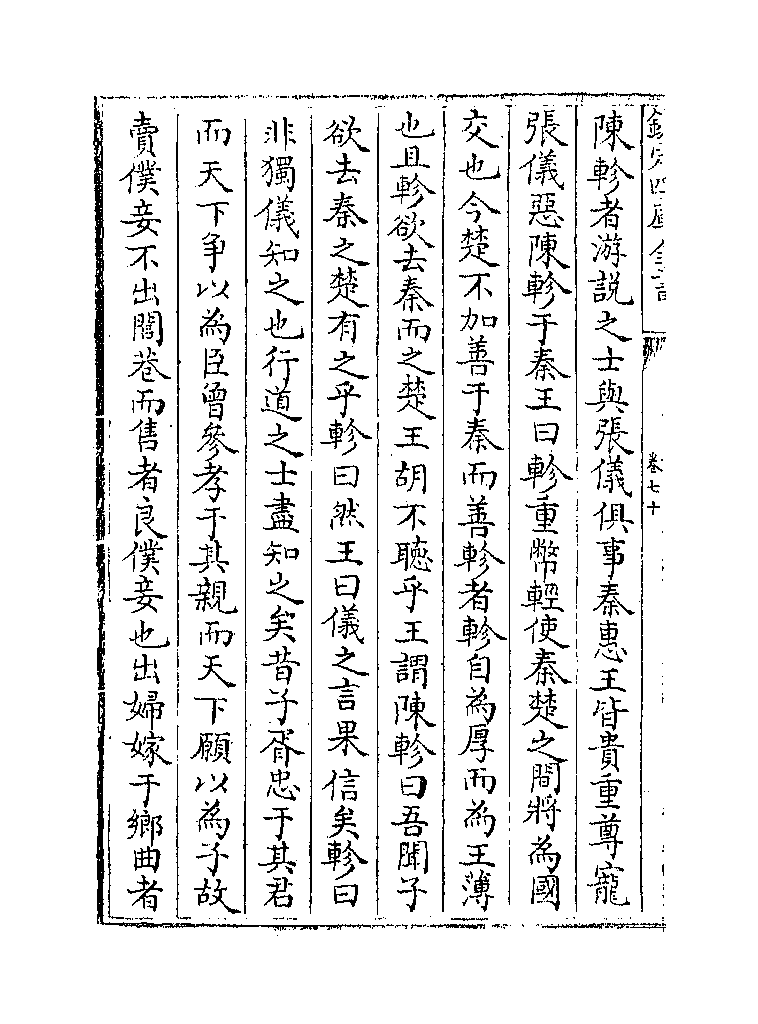 欽定四庫全書
卷七十
陳軫者游説之士與張儀俱事秦惠王皆貴重尊寵
張儀惡陳軫于秦王曰軫重幣輕使秦楚之間將為國
交也今楚不加善于秦而善軫者軫自為厚而為王薄
也且軫欲去秦而之楚王胡不聽乎王謂陳軫曰吾聞子
欲去秦之楚有之乎軫曰然王曰儀之言果信矣軫曰
非獨儀知之也行道之士盡知之矣昔子胥忠于其君
而天下争以為臣曾參孝于其親而天下願以為子故
賣僕妾不出閭巷而售者良僕妾也出婦嫁于鄉曲者